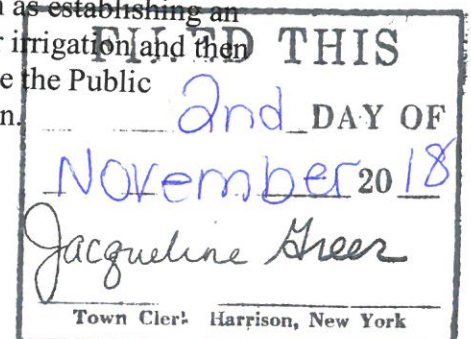 n as establishing an
r irrigation and then
e the Public
n.
FILED THIS
2nd DAY OF
November 2018
Jacqueline Greer
Town Clerk Harrison, New York